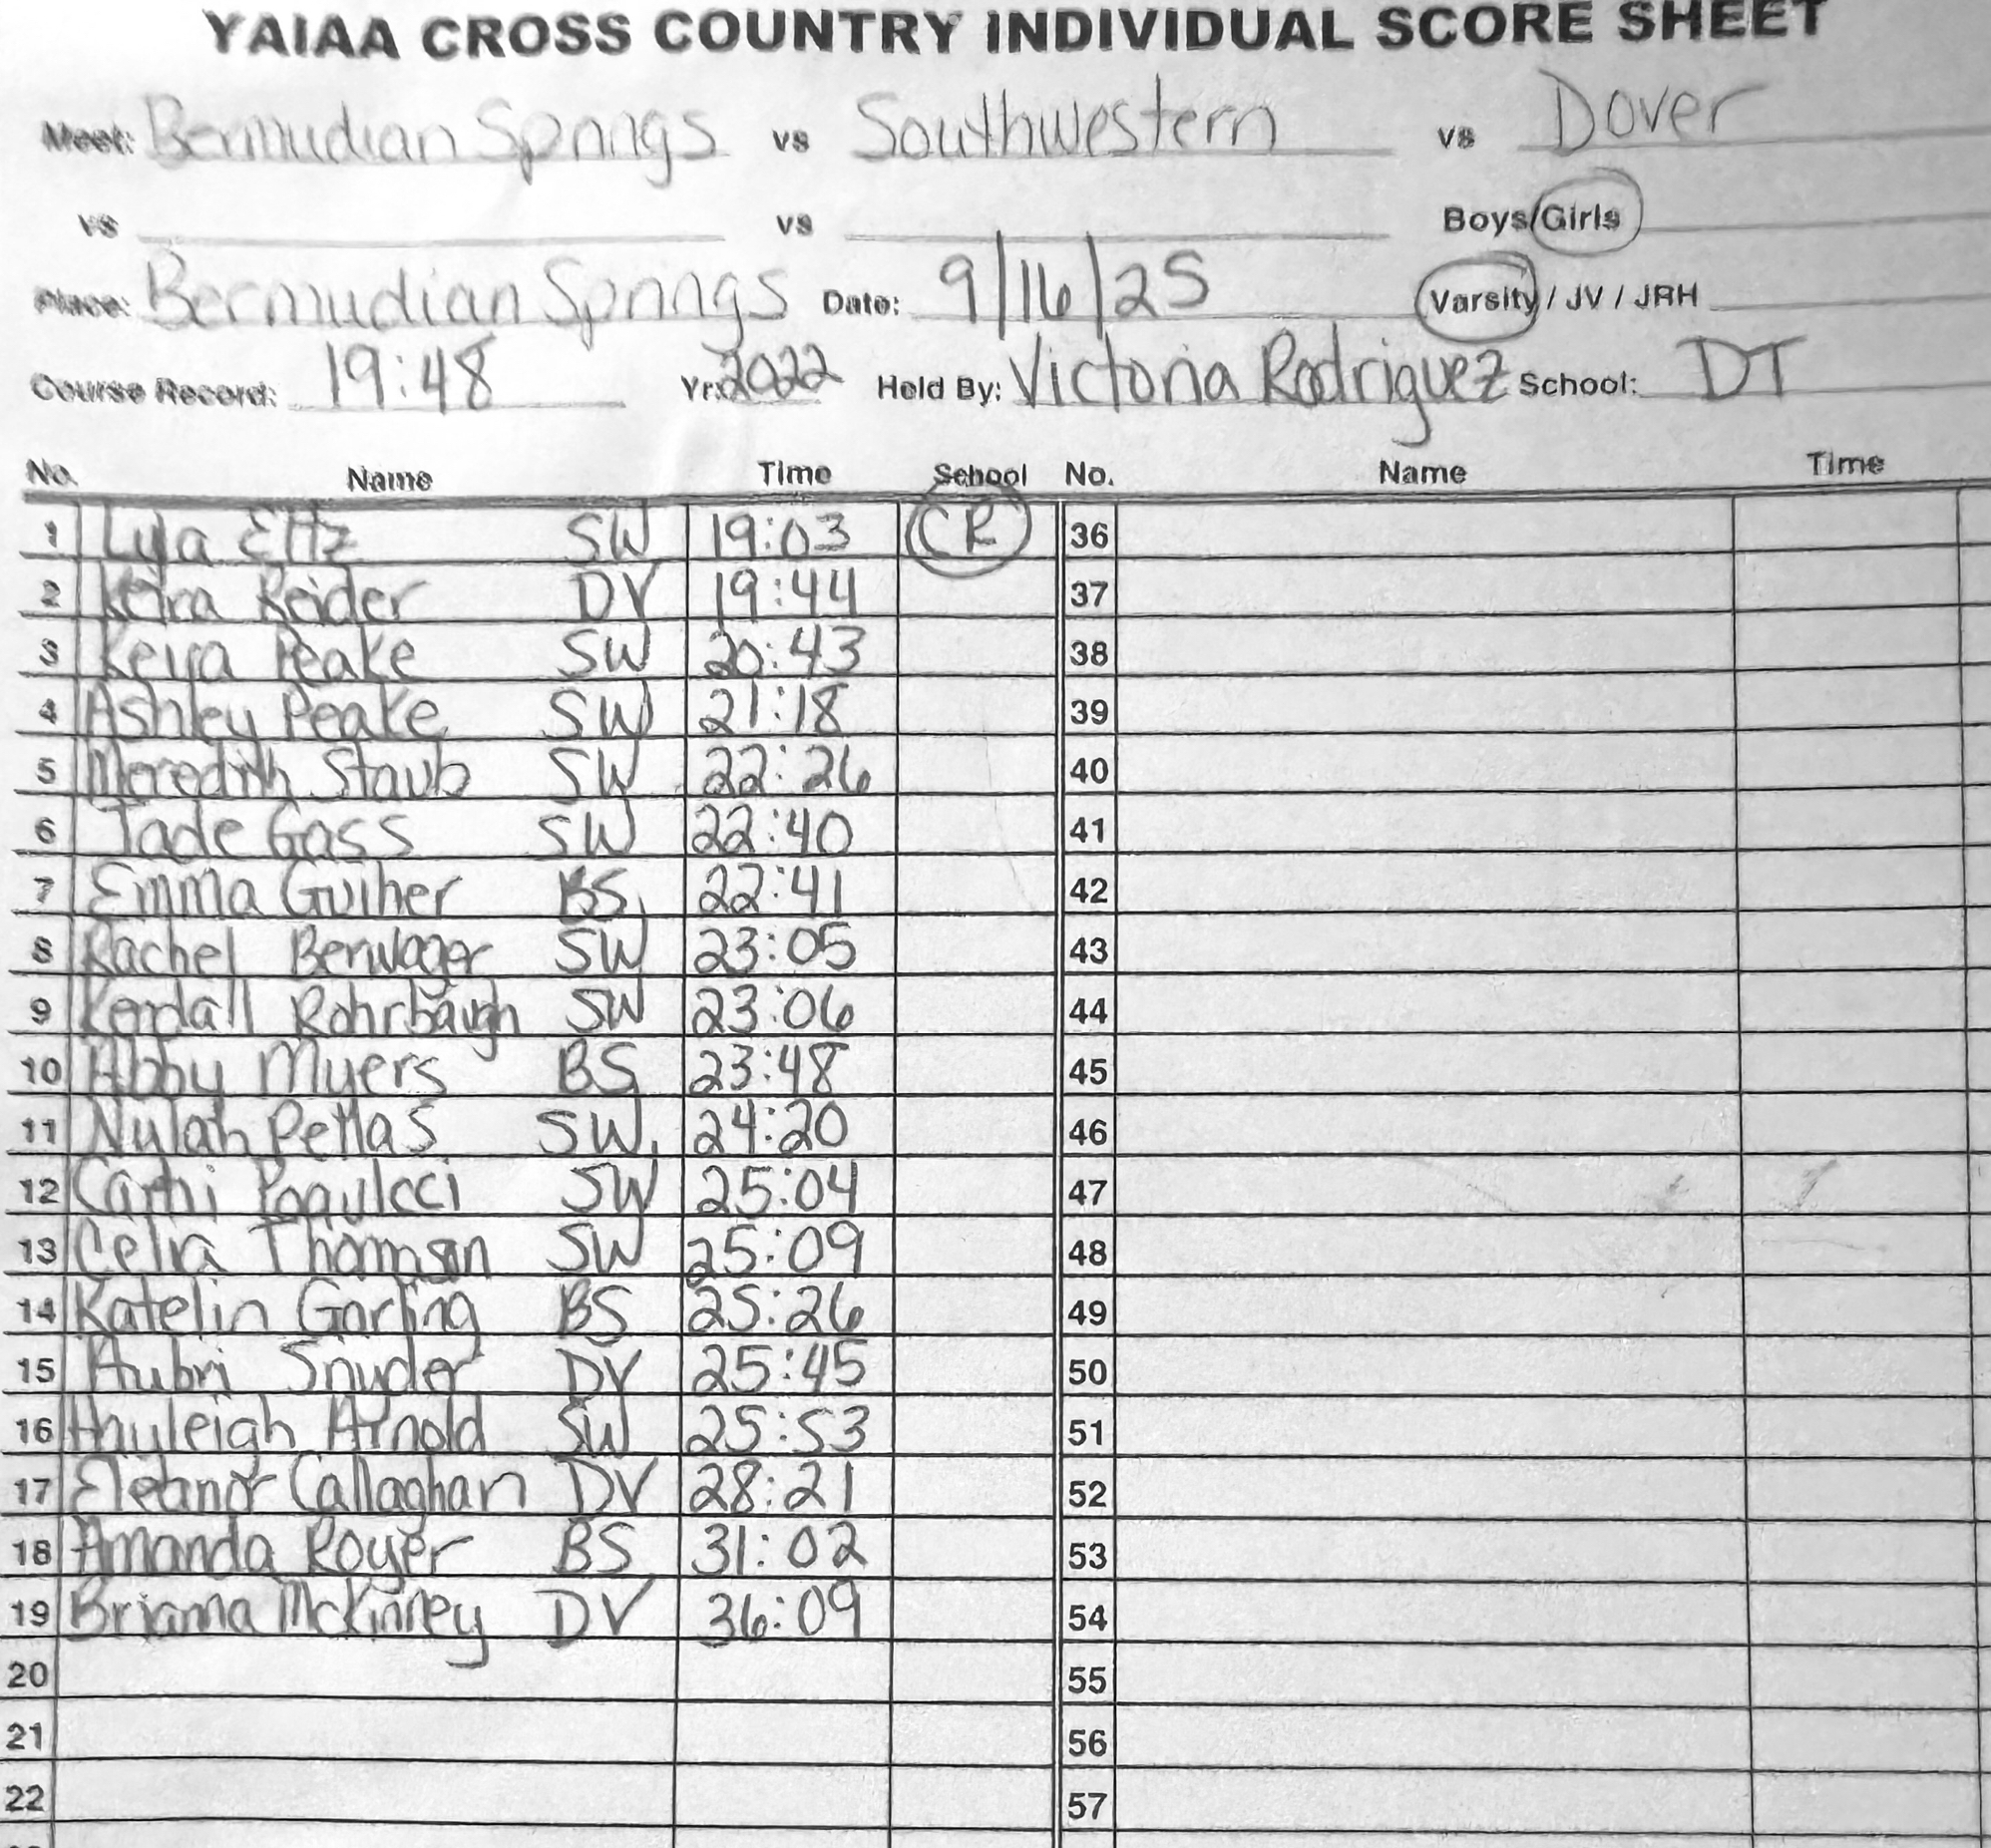 YAIAA CROSS COUNTRY INDIVIDUAL SCORE SHEET
Meet: Bermudian Springs vs Southwestern vs Dover
vs vs Boys/Girls
Place: Bermudian Springs Date: 9/16/25 Varsity / JV / JRH
Course Record: 19:48 Yr: 2022 Held By: Victoria Rodriguez School: DT
No. Name Time School No. Name Time
1 Lyla Eltz SW 19:03 CR 36
2 Keira Reider DV 19:44 37
3 Keira Peake SW 20:43 38
4 Ashley Peake SW 21:18 39
5 Meredith Staub SW 22:26 40
6 Jade Gass SW 22:40 41
7 Emma Guiher BS 22:41 42
8 Rachel SW 23:05 43
9 Kendall Rohrbaugh SW 23:06 44
10 Abby Myers BS 23:48 45
11 Nylah Pettas SW 24:20 46
12 SW 25:04 47
13 Celia Thomson SW 25:09 48
14 Katelin Garling BS 25:26 49
15 Aubri Snyder DV 25:45 50
16 Arnold SW 25:53 51
17 Eleanor Callaghan DV 28:21 52
18 Amanda Royer BS 31:02 53
19 Brianna McKinney DV 36:09 54
20 55
21 56
22 57